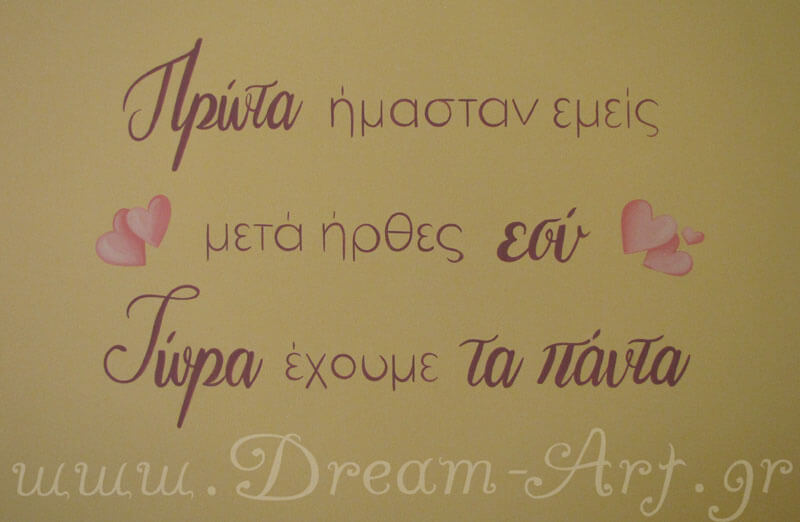 Πρώτα ήμασταν εμείς
μετά ήρθες εσύ
Τώρα έχουμε τα πάντα
www.Dream-Art.gr